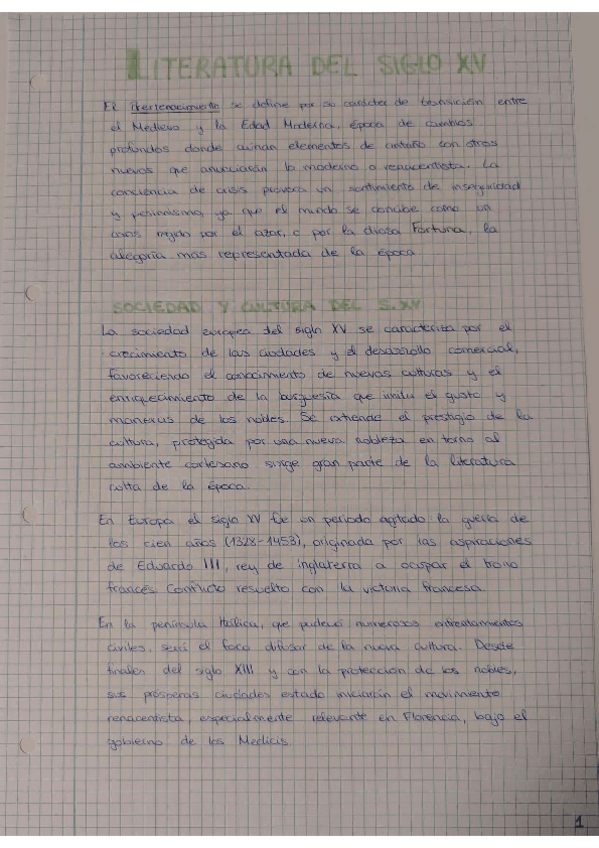 LITERATURA DEL SIGLO XV
El Prerrenacimiento se define por su carácter de transición entre
el Medievo y la Edad Moderna, época de cambios
profundos donde aúnan elementos de antaño con otros
nuevos que anunciarán lo moderno o renacentista. La
conciencia de crisis provoca un sentimiento de inseguridad
y pesimismo, ya que el mundo se concibe como un
caos regido por el azar, o por la diosa Fortuna, la
alegoría más representada de la época
SOCIEDAD Y CULTURA DEL S.XV
La sociedad europea del siglo XV se caracteriza por el
crecimiento de las ciudades y el desarrollo comercial,
favoreciendo el conocimiento de nuevas culturas y el
enriquecimiento de la burguesía que imita el gusto y
maneras de los nobles. Se extiende el prestigio de la
cultura, protegida por una nueva nobleza en torno al
ambiente cortesano surge gran parte de la literatura
culta de la época.
En Europa el siglo XV fue un periodo agitado: la guerra de
los cien años (1328-1453), originada por las aspiraciones
de Eduardo III, rey de Inglaterra a ocupar el trono
francés. Conflicto resuelto con la victoria francesa.
En la península Itálica, que padeció numerosos enfrentamientos
civiles, será el foco difusor de la nueva cultura. Desde
finales del siglo XIII y con la protección de los nobles,
sus prósperas ciudades estado iniciarán el movimiento
renacentista, especialmente relevante en Florencia, bajo el
gobierno de los Medicis.
1